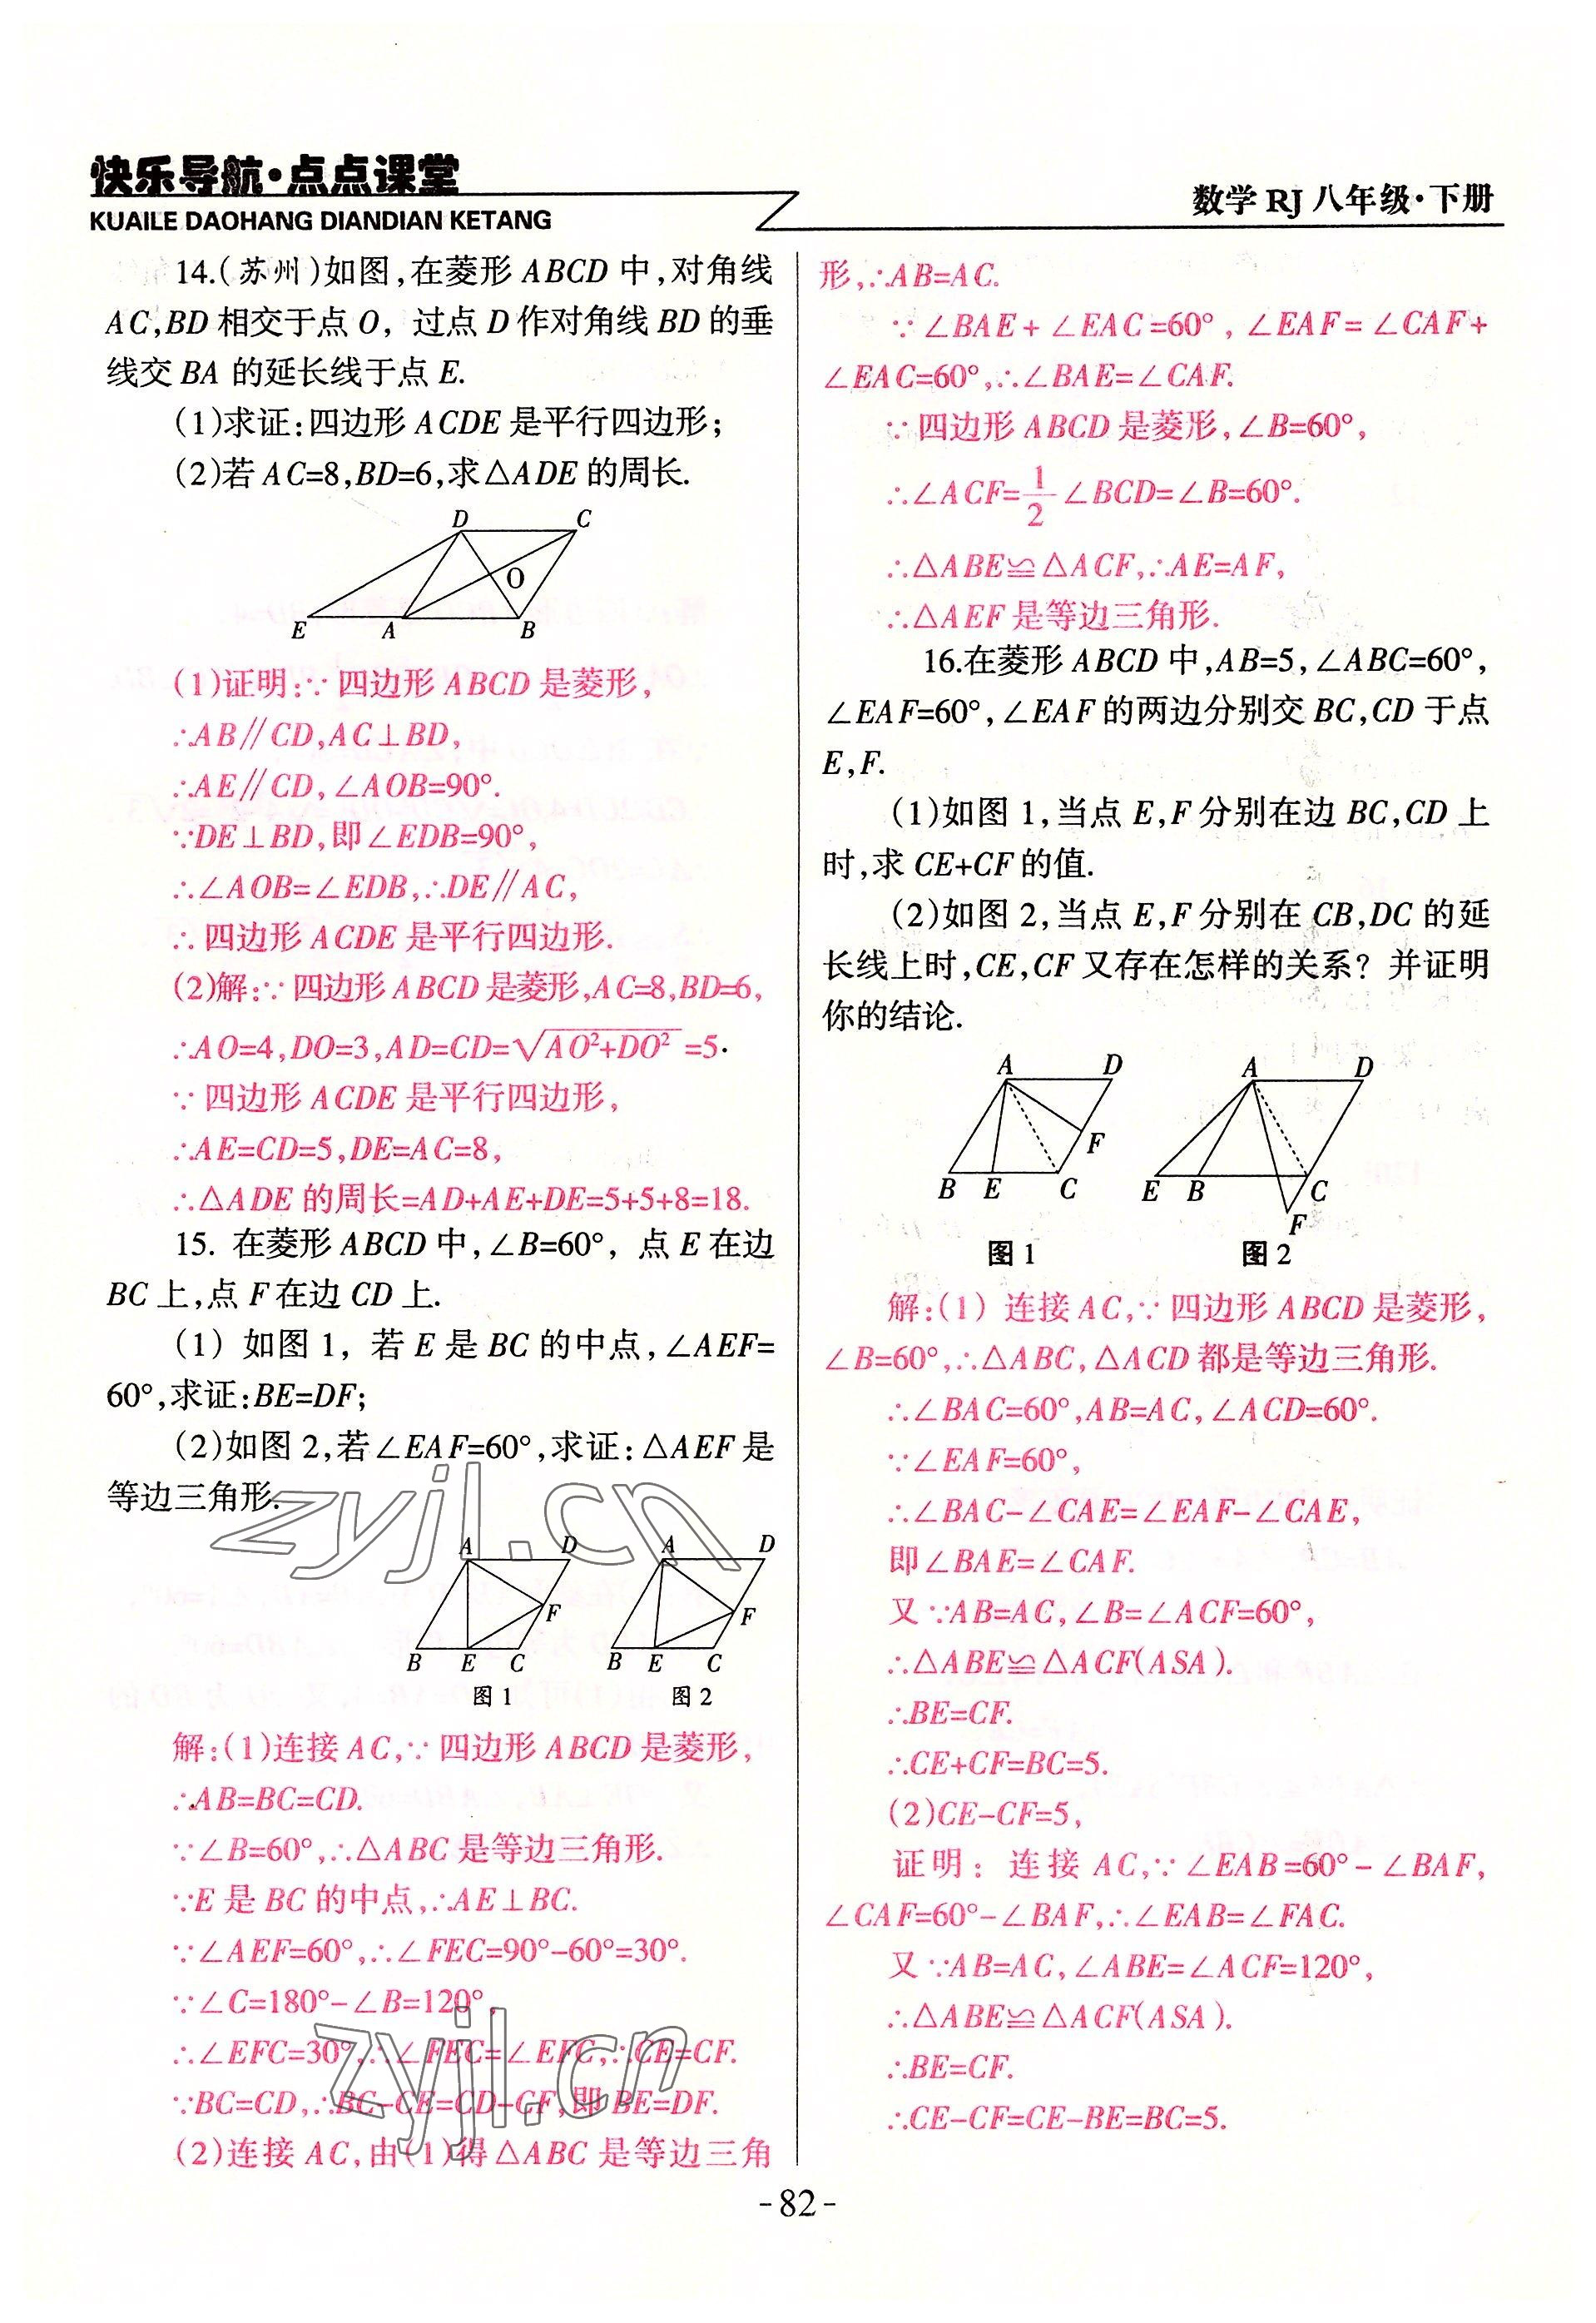 快乐导航·点点课堂
KUAILE DAOHANG DIANDIAN KETANG
数学 RJ 八年级·下册
14.(苏州)如图,在菱形 ABCD 中,对角线
AC,BD 相交于点 O, 过点 D 作对角线 BD 的垂
线交 BA 的延长线于点 E.
(1)求证:四边形 ACDE 是平行四边形;
(2)若 AC=8,BD=6,求△ADE 的周长.
D C
O
E A B
(1)证明:∵四边形 ABCD 是菱形,
∴AB∥CD,AC⊥BD,
∴AE∥CD,∠AOB=90°.
∵DE⊥BD,即∠EDB=90°,
∴∠AOB=∠EDB,∴DE∥AC,
∴四边形 ACDE 是平行四边形.
(2)解:∵四边形 ABCD 是菱形,AC=8,BD=6,
∴AO=4,DO=3,AD=CD=√(AO²+DO²)=5.
∵四边形 ACDE 是平行四边形,
∴AE=CD=5,DE=AC=8,
∴△ADE 的周长=AD+AE+DE=5+5+8=18.
15. 在菱形 ABCD 中,∠B=60°, 点 E 在边
BC 上,点 F 在边 CD 上.
(1) 如图 1, 若 E 是 BC 的中点,∠AEF=
60°,求证:BE=DF;
(2)如图 2,若∠EAF=60°,求证:△AEF 是
等边三角形.
zyjl.cn
A D A D
F F
B E C B E C
图 1 图 2
解:(1)连接 AC,∵四边形 ABCD 是菱形,
∴AB=BC=CD.
∵∠B=60°,∴△ABC 是等边三角形.
∵E 是 BC 的中点,∴AE⊥BC.
∵∠AEF=60°,∴∠FEC=90°-60°=30°.
∵∠C=180°-∠B=120°,
∴∠EFC=30°,∴∠FEC=∠EFC,∴CE=CF.
∵BC=CD,∴BC-CE=CD-CF,即 BE=DF.
zyjl.cn
(2)连接 AC,由(1)得△ABC 是等边三角
形,∴AB=AC.
∵∠BAE+∠EAC=60°,∠EAF=∠CAF+
∠EAC=60°,∴∠BAE=∠CAF.
∵四边形 ABCD 是菱形,∠B=60°,
∴∠ACF=1/2∠BCD=∠B=60°.
∴△ABE≌△ACF,∴AE=AF,
∴△AEF 是等边三角形.
16.在菱形 ABCD 中,AB=5,∠ABC=60°,
∠EAF=60°,∠EAF 的两边分别交 BC,CD 于点
E,F.
(1)如图 1,当点 E,F 分别在边 BC,CD 上
时,求 CE+CF 的值.
(2)如图 2,当点 E,F 分别在 CB,DC 的延
长线上时,CE,CF 又存在怎样的关系? 并证明
你的结论.
A D A D
F
B E C E B C
F
图 1 图 2
解:(1) 连接 AC,∵四边形 ABCD 是菱形,
∠B=60°,∴△ABC,△ACD 都是等边三角形.
∴∠BAC=60°,AB=AC,∠ACD=60°.
∵∠EAF=60°,
∴∠BAC-∠CAE=∠EAF-∠CAE,
即∠BAE=∠CAF.
又∵AB=AC,∠B=∠ACF=60°,
∴△ABE≌△ACF(ASA).
∴BE=CF.
∴CE+CF=BC=5.
(2)CE-CF=5,
证明: 连接 AC,∵∠EAB=60°-∠BAF,
∠CAF=60°-∠BAF,∴∠EAB=∠FAC.
又∵AB=AC,∠ABE=∠ACF=120°,
∴△ABE≌△ACF(ASA).
∴BE=CF.
∴CE-CF=CE-BE=BC=5.
-82-